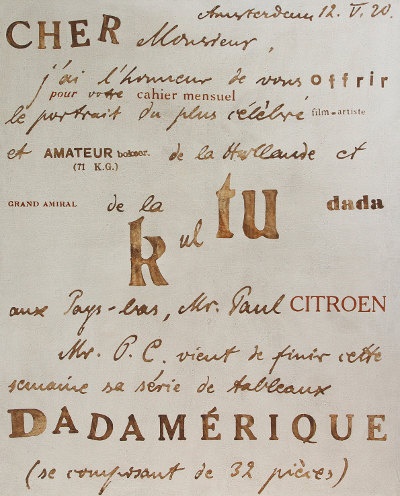 Amsterdam 12. V. 20.
CHER Monsieur,
j'ai l'honneur de vous offrir
pour votre cahier mensuel
le portrait du plus célébré film-artiste
et AMATEUR bokser. de la Hollande et
(71 K.G.)
GRAND AMIRAL de la kul tu dada
aux Pays-bas, Mr. Paul CITROEN
Mr. P. C. vient de finir cette
semaine sa série de tableaux
DADAMÉRIQUE
(se composant de 32 pièces)